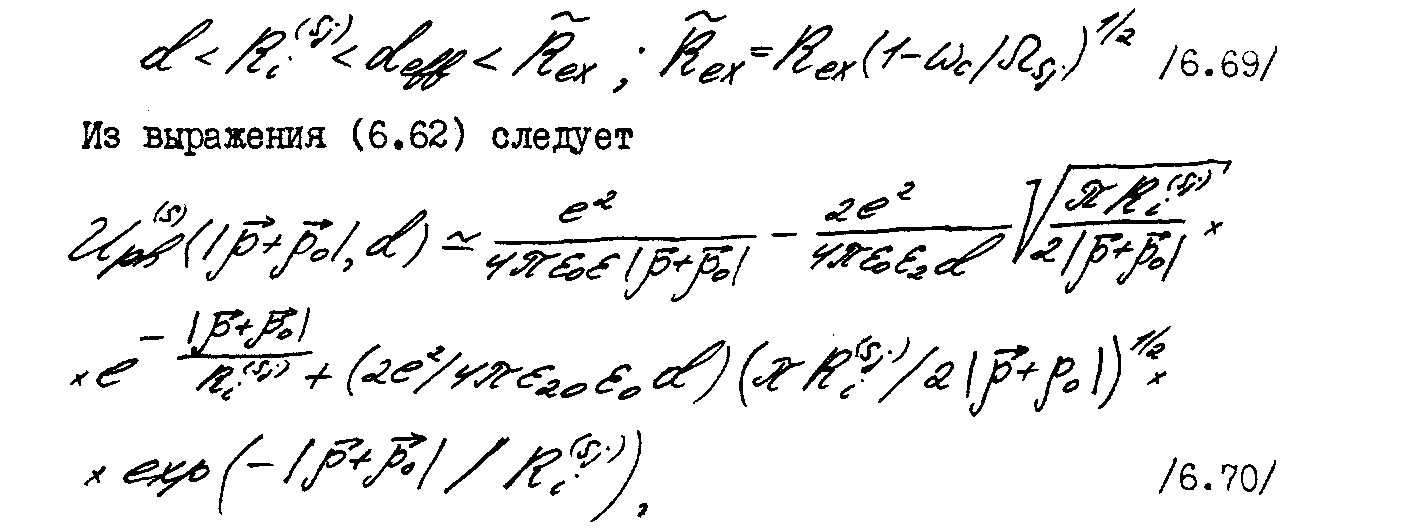 d < R_i^{(S_j)} < d_{eff} < \tilde{R}_{ex} ; \tilde{R}_{ex} = R_{ex}(1-ω_c/Ω_{S_j})^{1/2} /6.69/
Из выражения (6.62) следует
U_{рв}^{(S)}(|\vec{ρ}+\vec{ρ}_0|, d) ≃ \frac{e^2}{4πε_0ε|\vec{ρ}+\vec{ρ}_0|} - \frac{2e^2}{4πε_0ε_2d} \sqrt{\frac{πR_i^{(S_j)}}{2|\vec{ρ}+\vec{ρ}_0|}} ×
× e^{-\frac{|\vec{ρ}+\vec{ρ}_0|}{R_i^{(S_j)}}} + (2e^2/4πε_{20}ε_0d)(πR_i^{(S_j)}/2|\vec{ρ}+ρ_0|)^{1/2} ×
× exp(-|\vec{ρ}+\vec{ρ}_0| / R_i^{(S_j)}), /6.70/